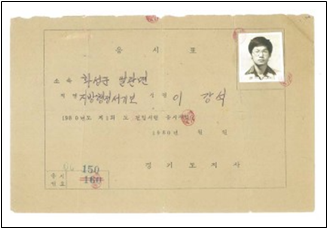 응 시 표
소 속 화성군 팔탄면
직 명 지방행정서기보 성 명 이 강 석
1980년도 제1회
1980년 월 일
경 기 도 지 사
응 시
번 호
150
160